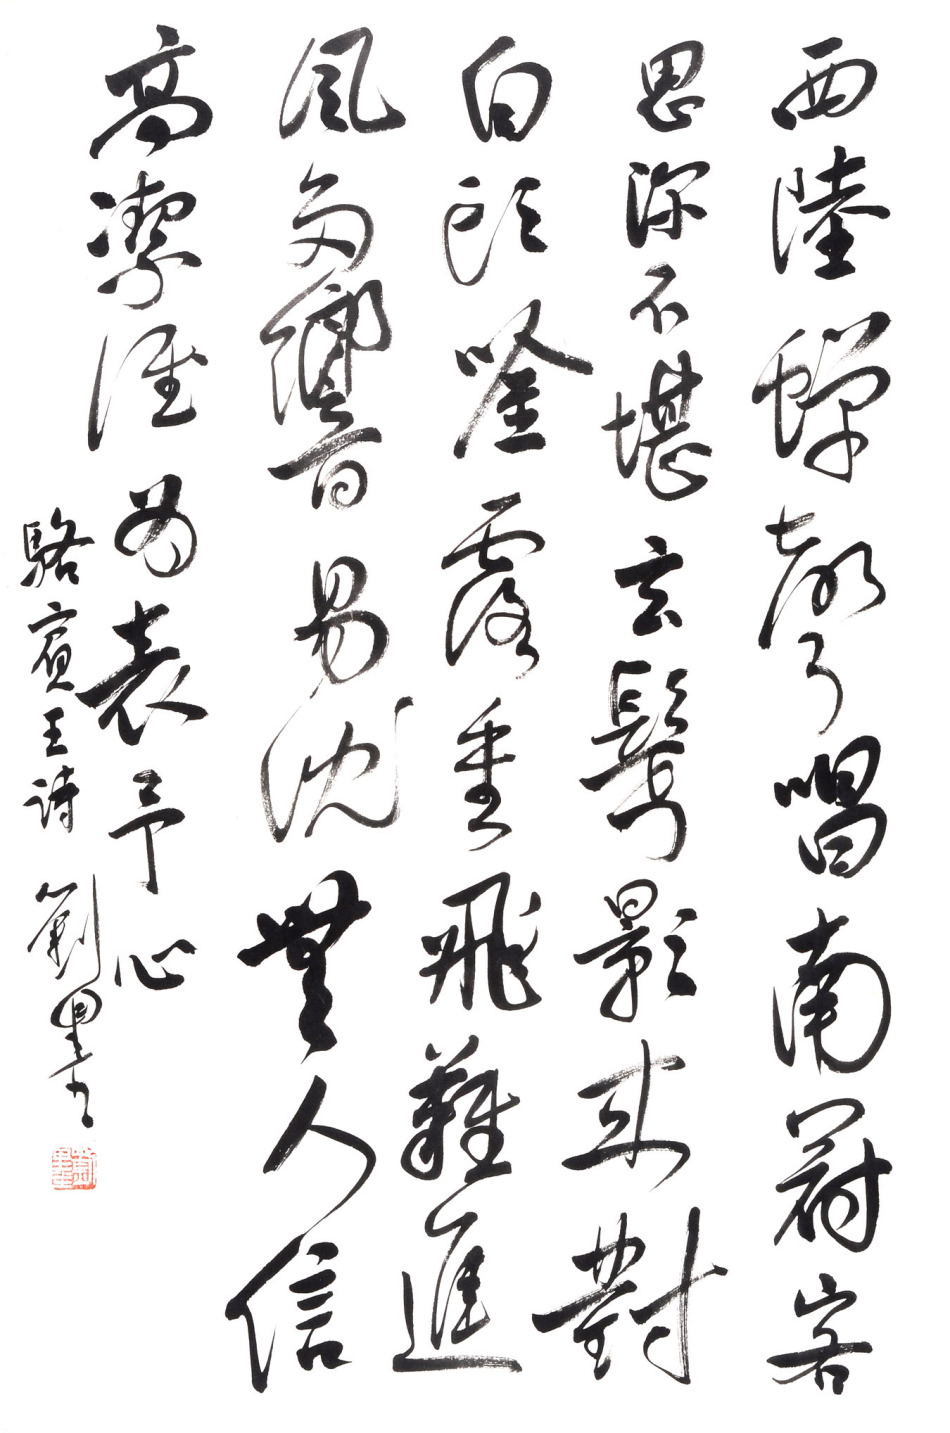 西陸蟬聲唱南冠客
思深不堪玄鬢影來對
白頭唫露重飛難進
風多響易沈無人信
高潔誰為表予心
駱賓王詩 劉墨
劉墨